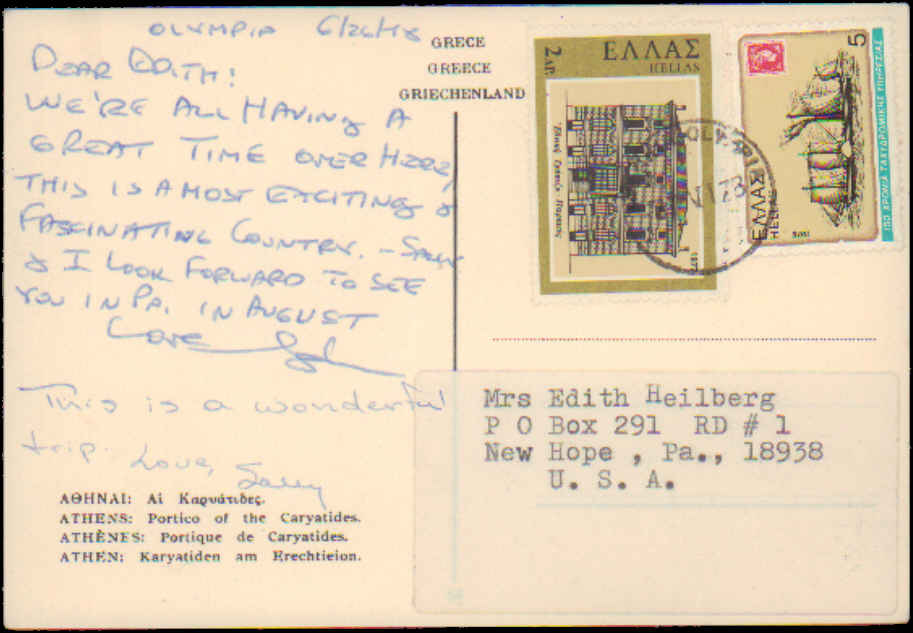 OLYMPIA 6/26/78
DEAR EDITH!
WE'RE ALL HAVING A
GREAT TIME OVER HERE,
THIS IS A MOST EXCITING &
FASCINATING COUNTRY. – SALLY
& I LOOK FORWARD TO SEE
YOU IN PA. IN AUGUST
LOVE
This is a wonderful
trip. Love, Sally
ΑΘΗΝΑΙ: Αἱ Καρυάτιδες.
ATHENS: Portico of the Caryatides.
ATHÈNES: Portique de Caryatides.
ATHEN: Karyatiden am Erechtieion.
GRECE
GREECE
GRIECHENLAND
2 ΔΡ.
ΕΛΛΑΣ
HELLAS
1977
5
ΕΛΛΑΣ
HELLAS
150 ΧΡΟΝΙΑ ΤΑΧΥΔΡΟΜΙΚΗΣ ΥΠΗΡΕΣΙΑΣ
Mrs Edith Heilberg
P O Box 291 RD # 1
New Hope , Pa., 18938
U. S. A.